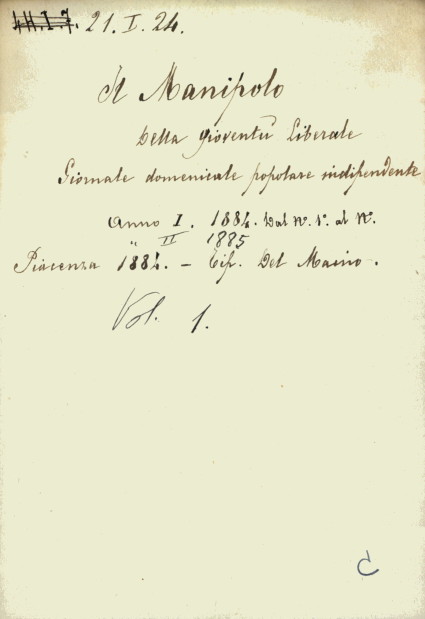 4 H. I. 7. 21. I. 24.
Il Manipolo
Della gioventù Liberale
Giornale domenicale popolare indipendente
Anno I. 1884. Dal N°. 1°. al N°.
" II 1885
Piacenza 1884. — Tip. Del Maino.
Vol. 1.
C